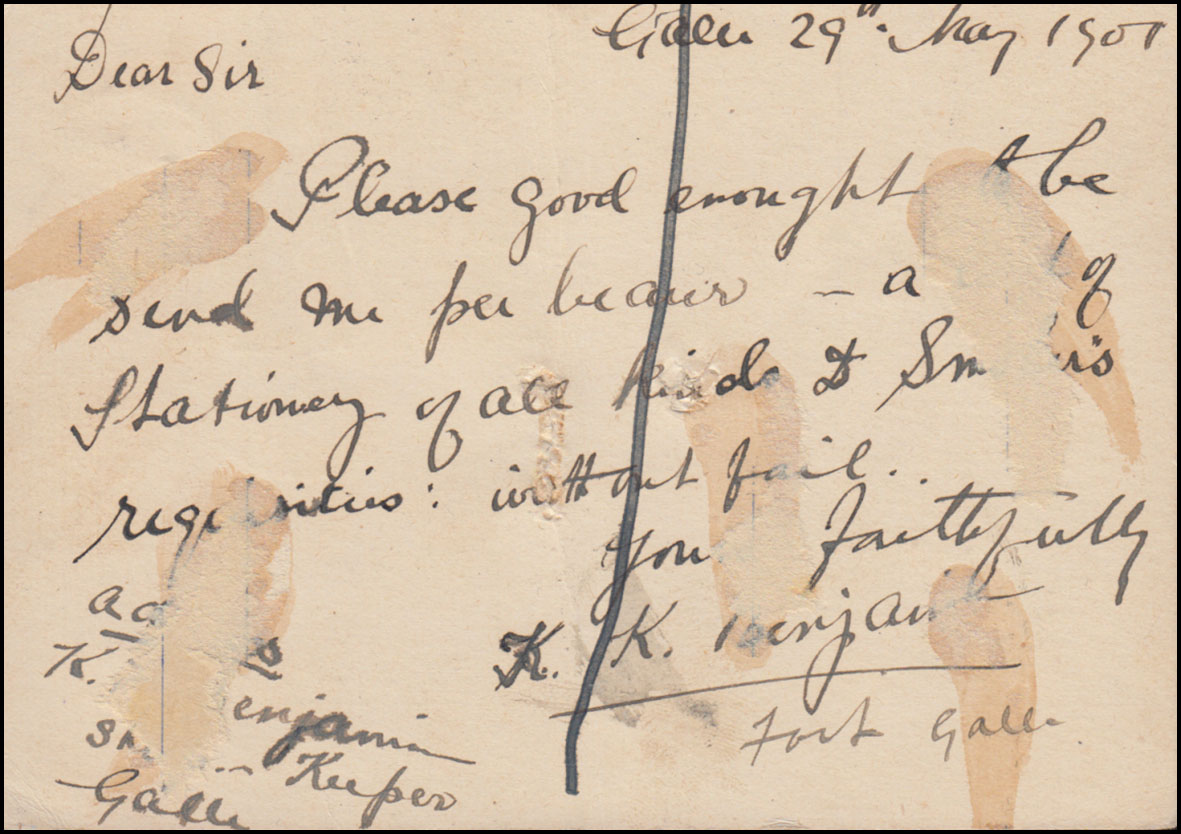 Galle 29th May 1901
Dear Sir
Please good enought t be
send me per bearer - a of
Stationery of all kinds &
without fail.
faithfully
K. K. Benjamin
Fort Galle
K. enjamin
Keeper
Galle